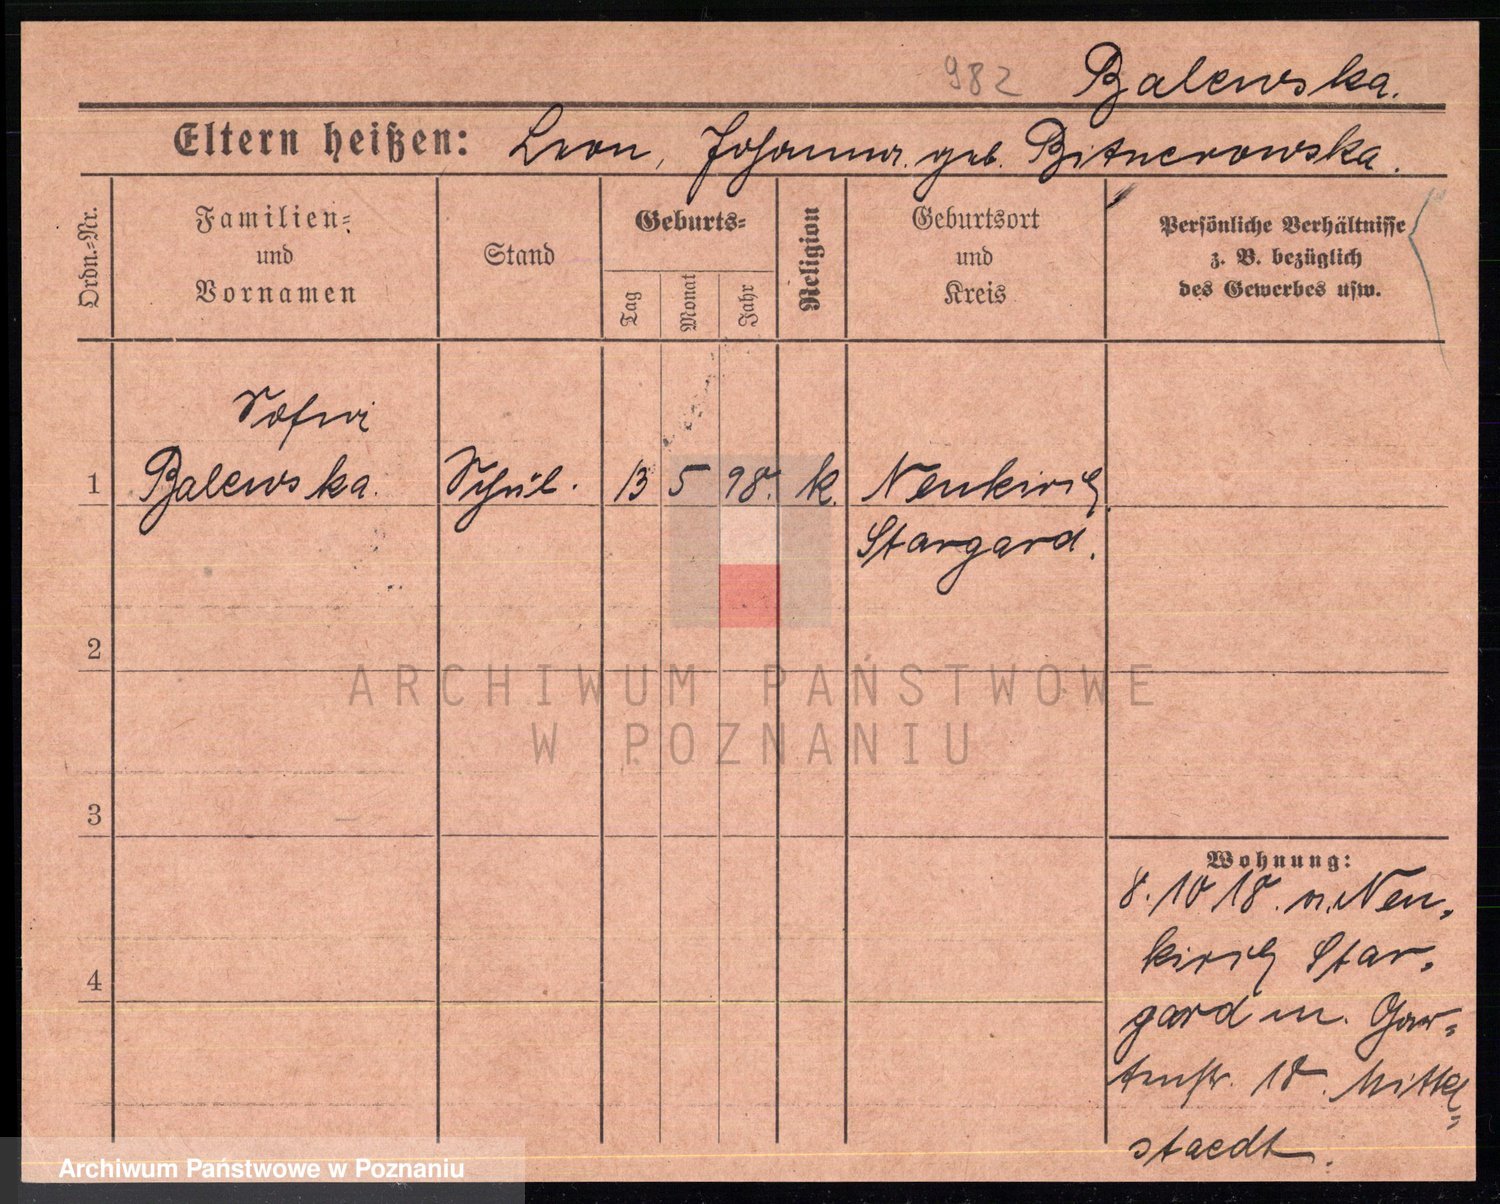 982 Balewska.
Eltern heißen: Leon, Johanna. geb. Bitnerowska.
Ordn.=Nr.
Familien=
und
Vornamen
Stand
Geburts=
Tag
Monat
Jahr
Religion
Geburtsort
und
Kreis
Persönliche Verhältnisse
z. B. bezüglich
des Gewerbes usw.
Sofie
1 Balewska. Schül. 13 5 98. k. Neukirch
Stargard.
2
3
4
Wohnung:
8. 10 18. n. Neu-
kirch Star-
gard m. Gar-
tenstr. 18. Mittel-
staedt.
ARCHIWUM PAŃSTWOWE
W POZNANIU
Archiwum Państwowe w Poznaniu